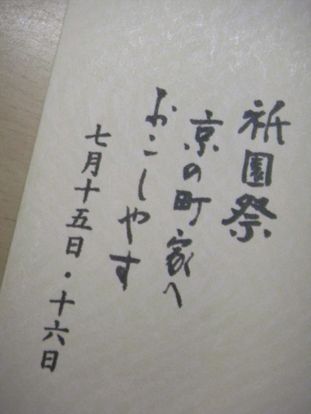 祇園祭
京の町家へ
おこしやす
七月十五日・十六日